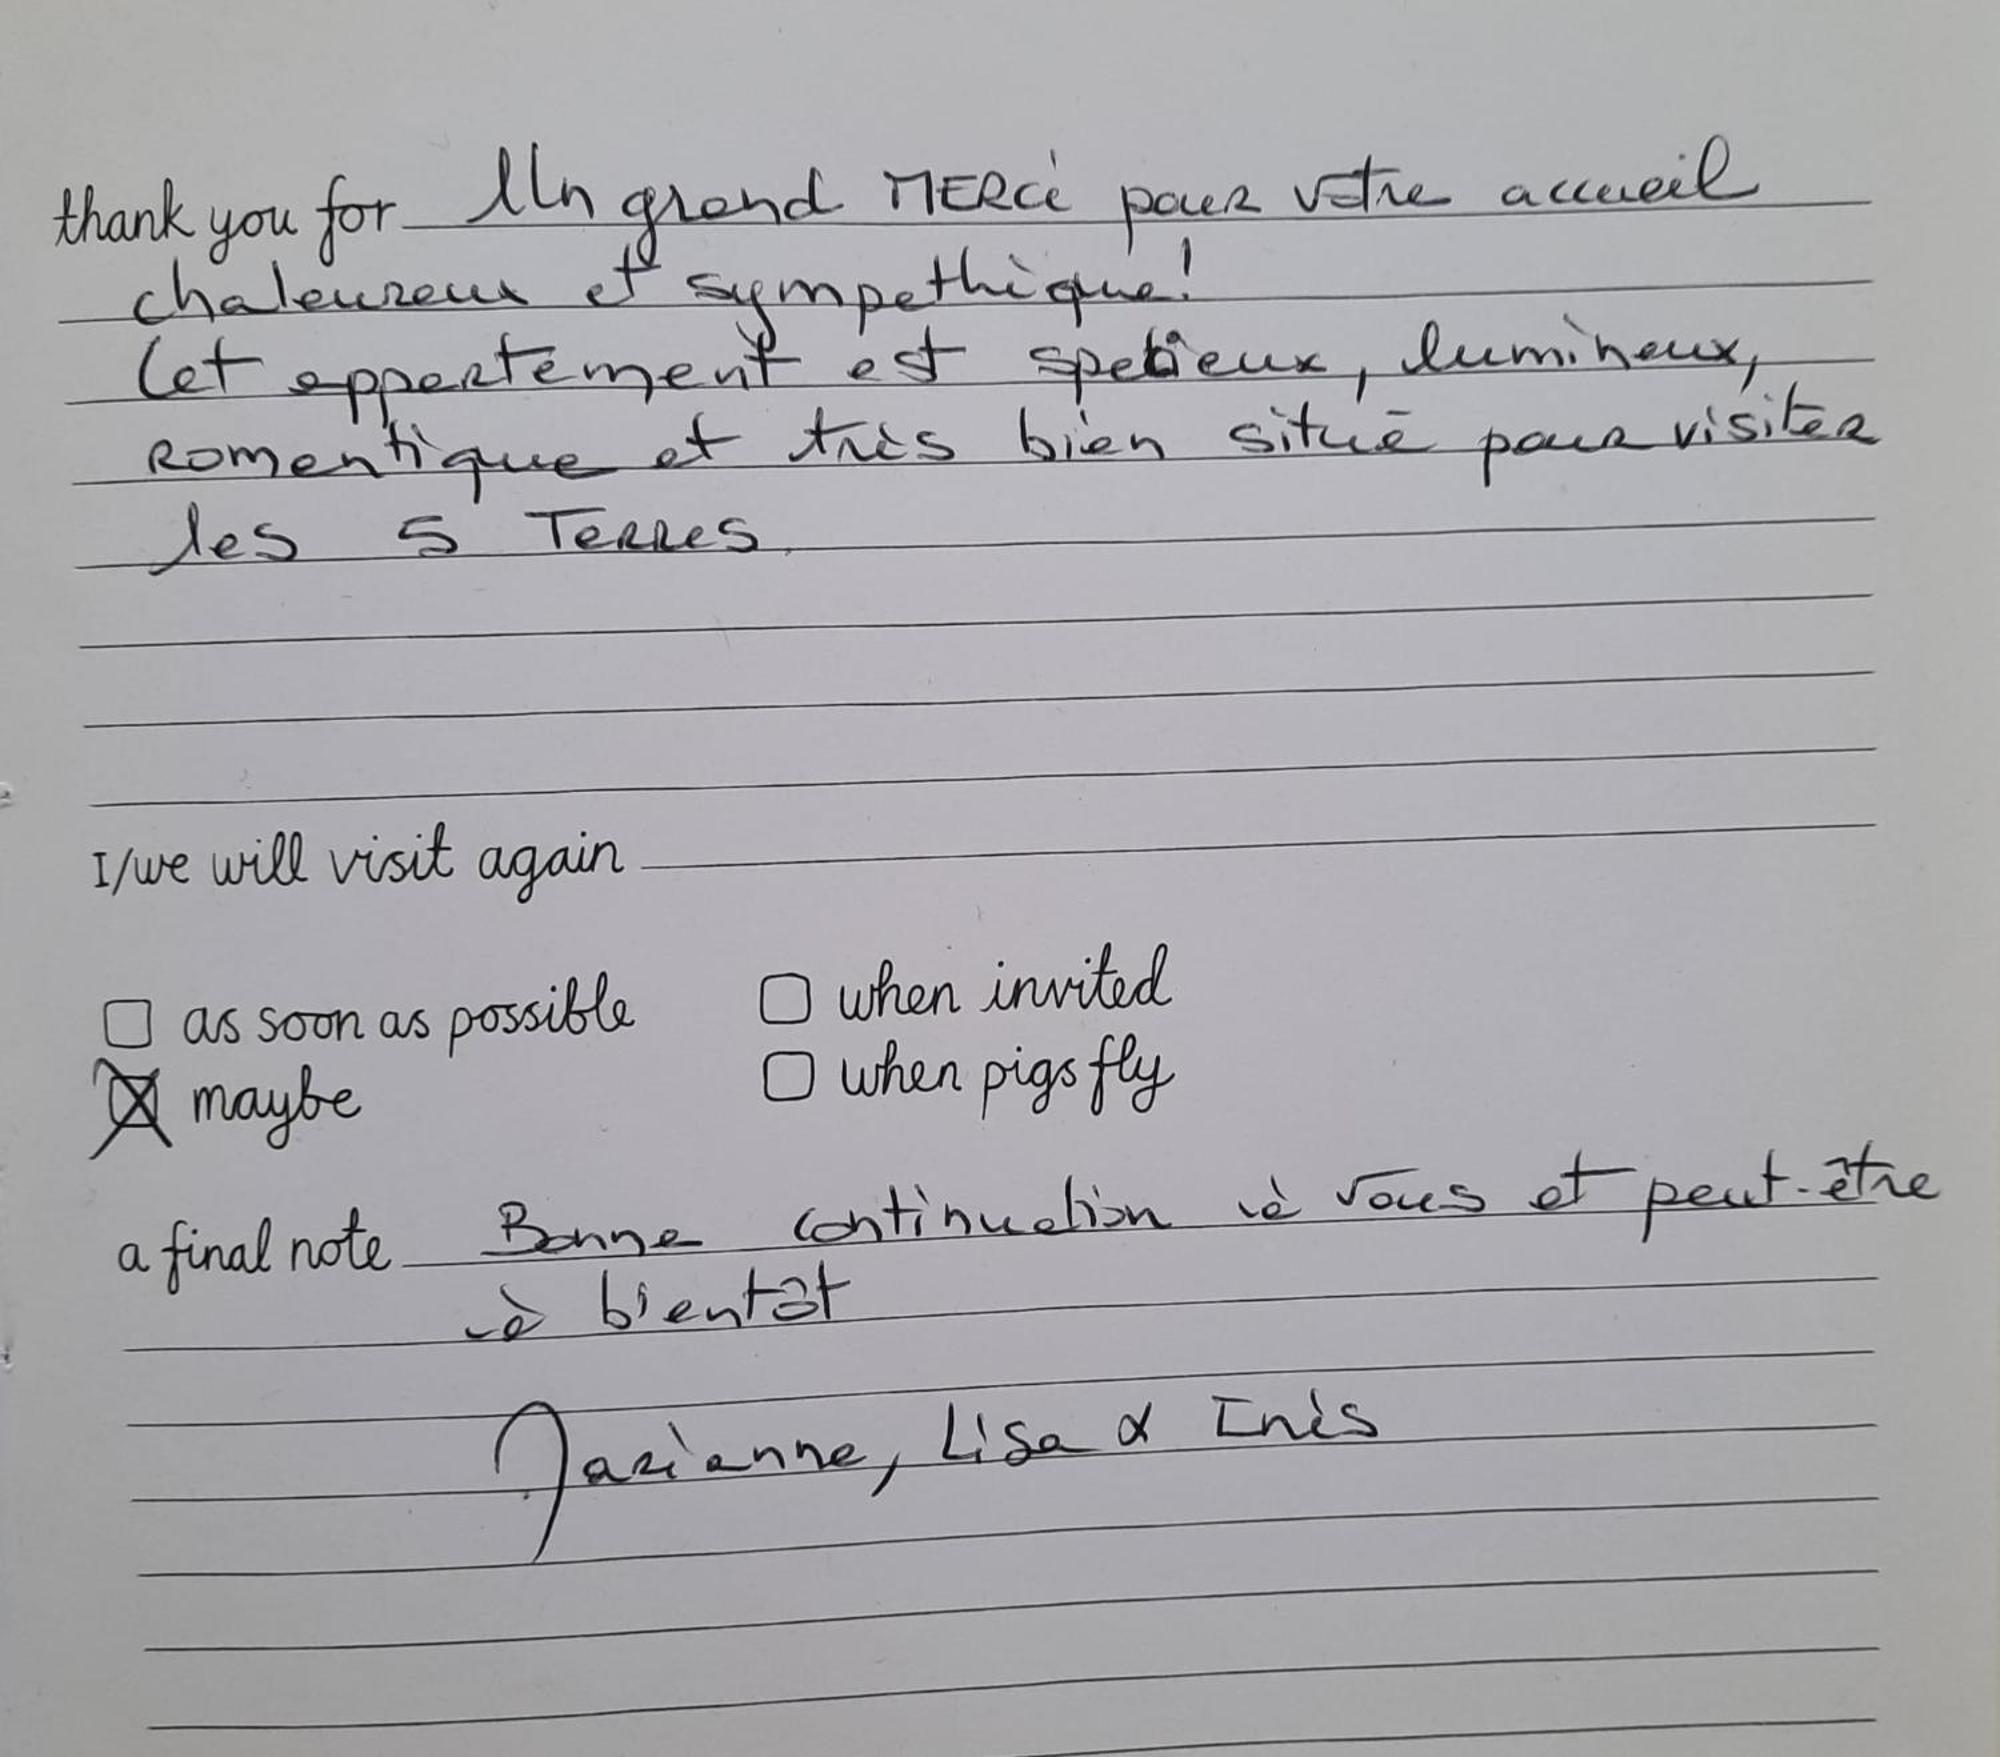 thank you for Un grand MERCi pour votre accueil
chaleureux et sympathique!
Cet appartement est spacieux, lumineux,
romantique et très bien situé pour visiter
les 5 Terres.
I/we will visit again
as soon as possible when invited
maybe when pigs fly
a final note Bonne continuation à vous et peut-être
à bientôt
Marianne, Lisa & Inès